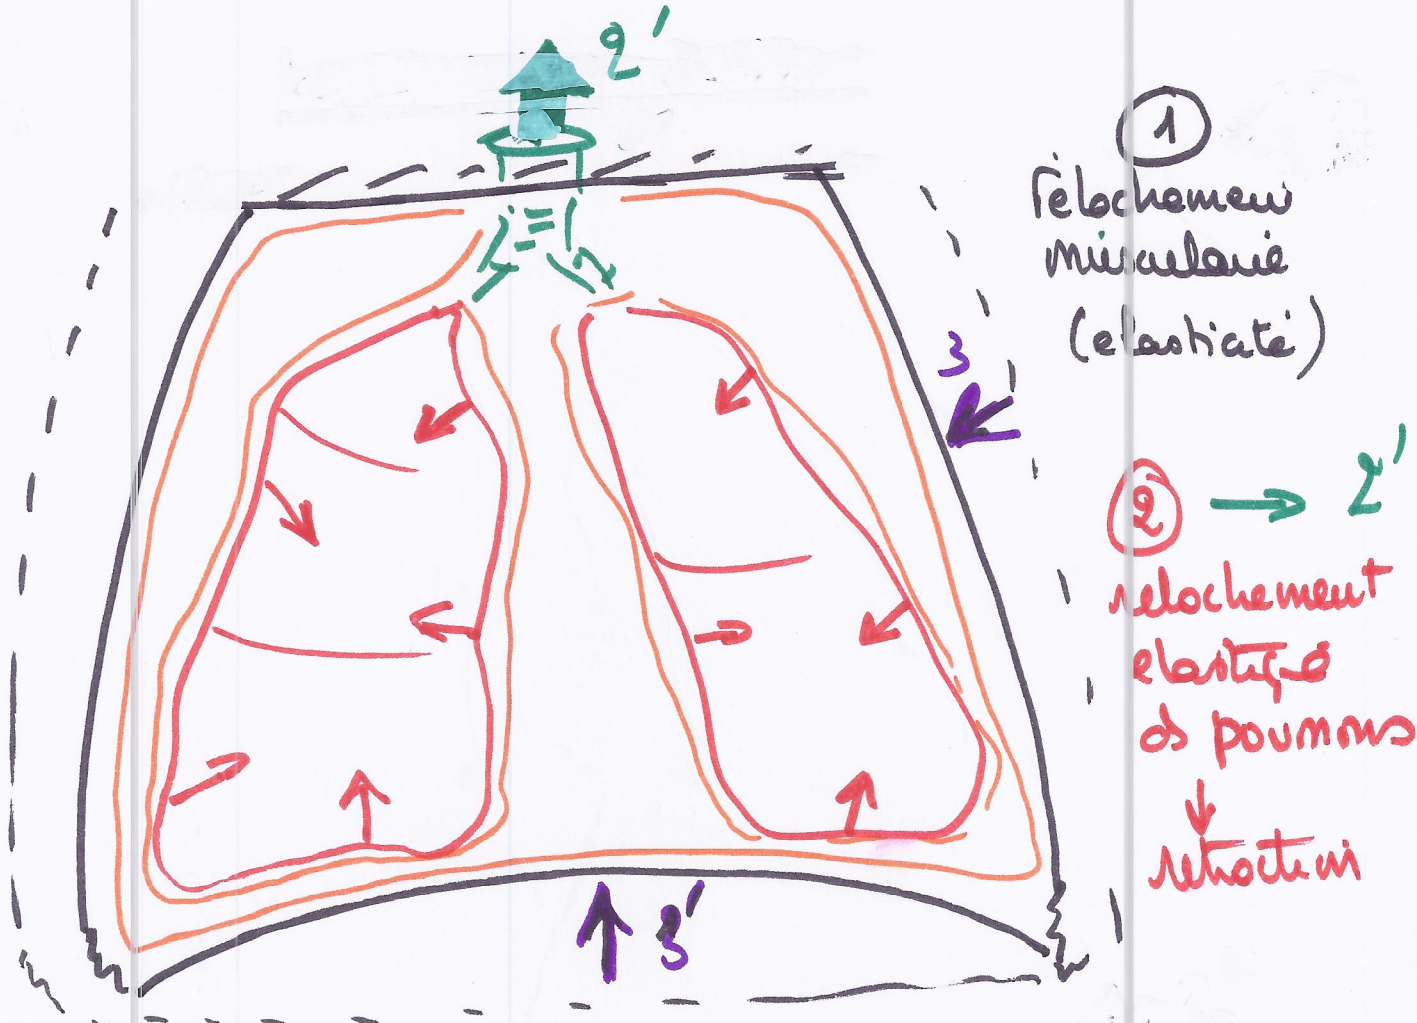 2'
1
relachement
musculaire
(elasticité)
3
2 → 2'
relachement
elastique
ds poumons
↓
retraction
3'